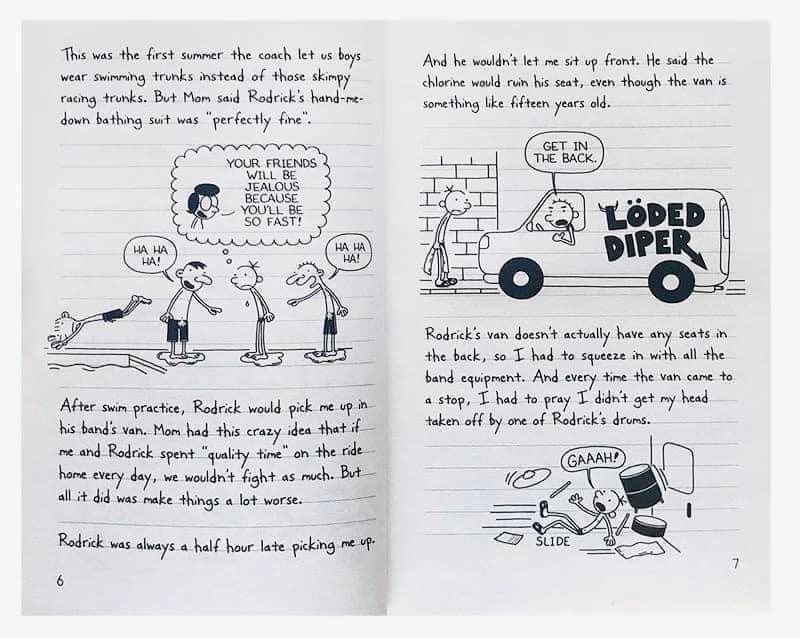 This was the first summer the coach let us boys
wear swimming trunks instead of those skimpy
racing trunks. But Mom said Rodrick's hand-me-
down bathing suit was "perfectly fine".
YOUR FRIENDS
WILL BE
JEALOUS
BECAUSE
YOU'LL BE
SO FAST!
HA HA
HA!
HA HA
HA!
After swim practice, Rodrick would pick me up in
his band's van. Mom had this crazy idea that if
me and Rodrick spent "quality time" on the ride
home every day, we wouldn't fight as much. But
all it did was make things a lot worse.
Rodrick was always a half hour late picking me up.
6
And he wouldn't let me sit up front. He said the
chlorine would ruin his seat, even though the van is
something like fifteen years old.
GET IN
THE BACK.
LÖDED
DIPER
Rodrick's van doesn't actually have any seats in
the back, so I had to squeeze in with all the
band equipment. And every time the van came to
a stop, I had to pray I didn't get my head
taken off by one of Rodrick's drums.
GAAAH!
SLIDE
7